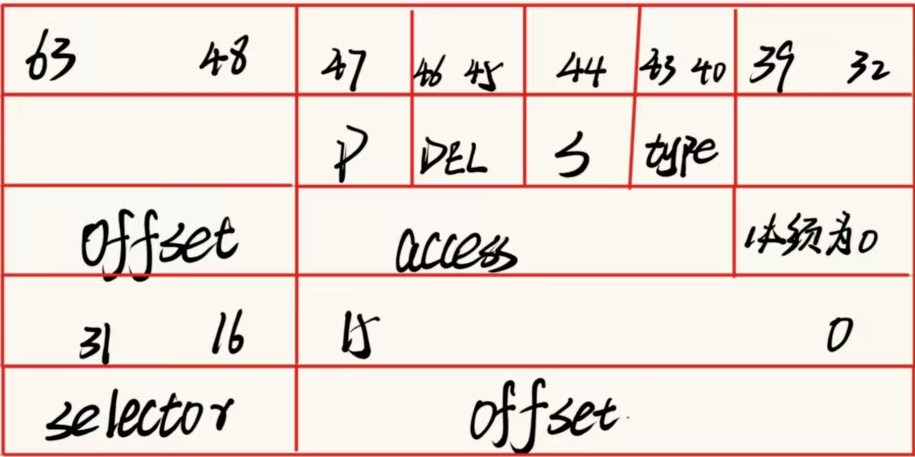 63 48 47 46 45 44 43 40 39 32
P DEL S type
offset access 必须为0
31 16 15 0
selector offset